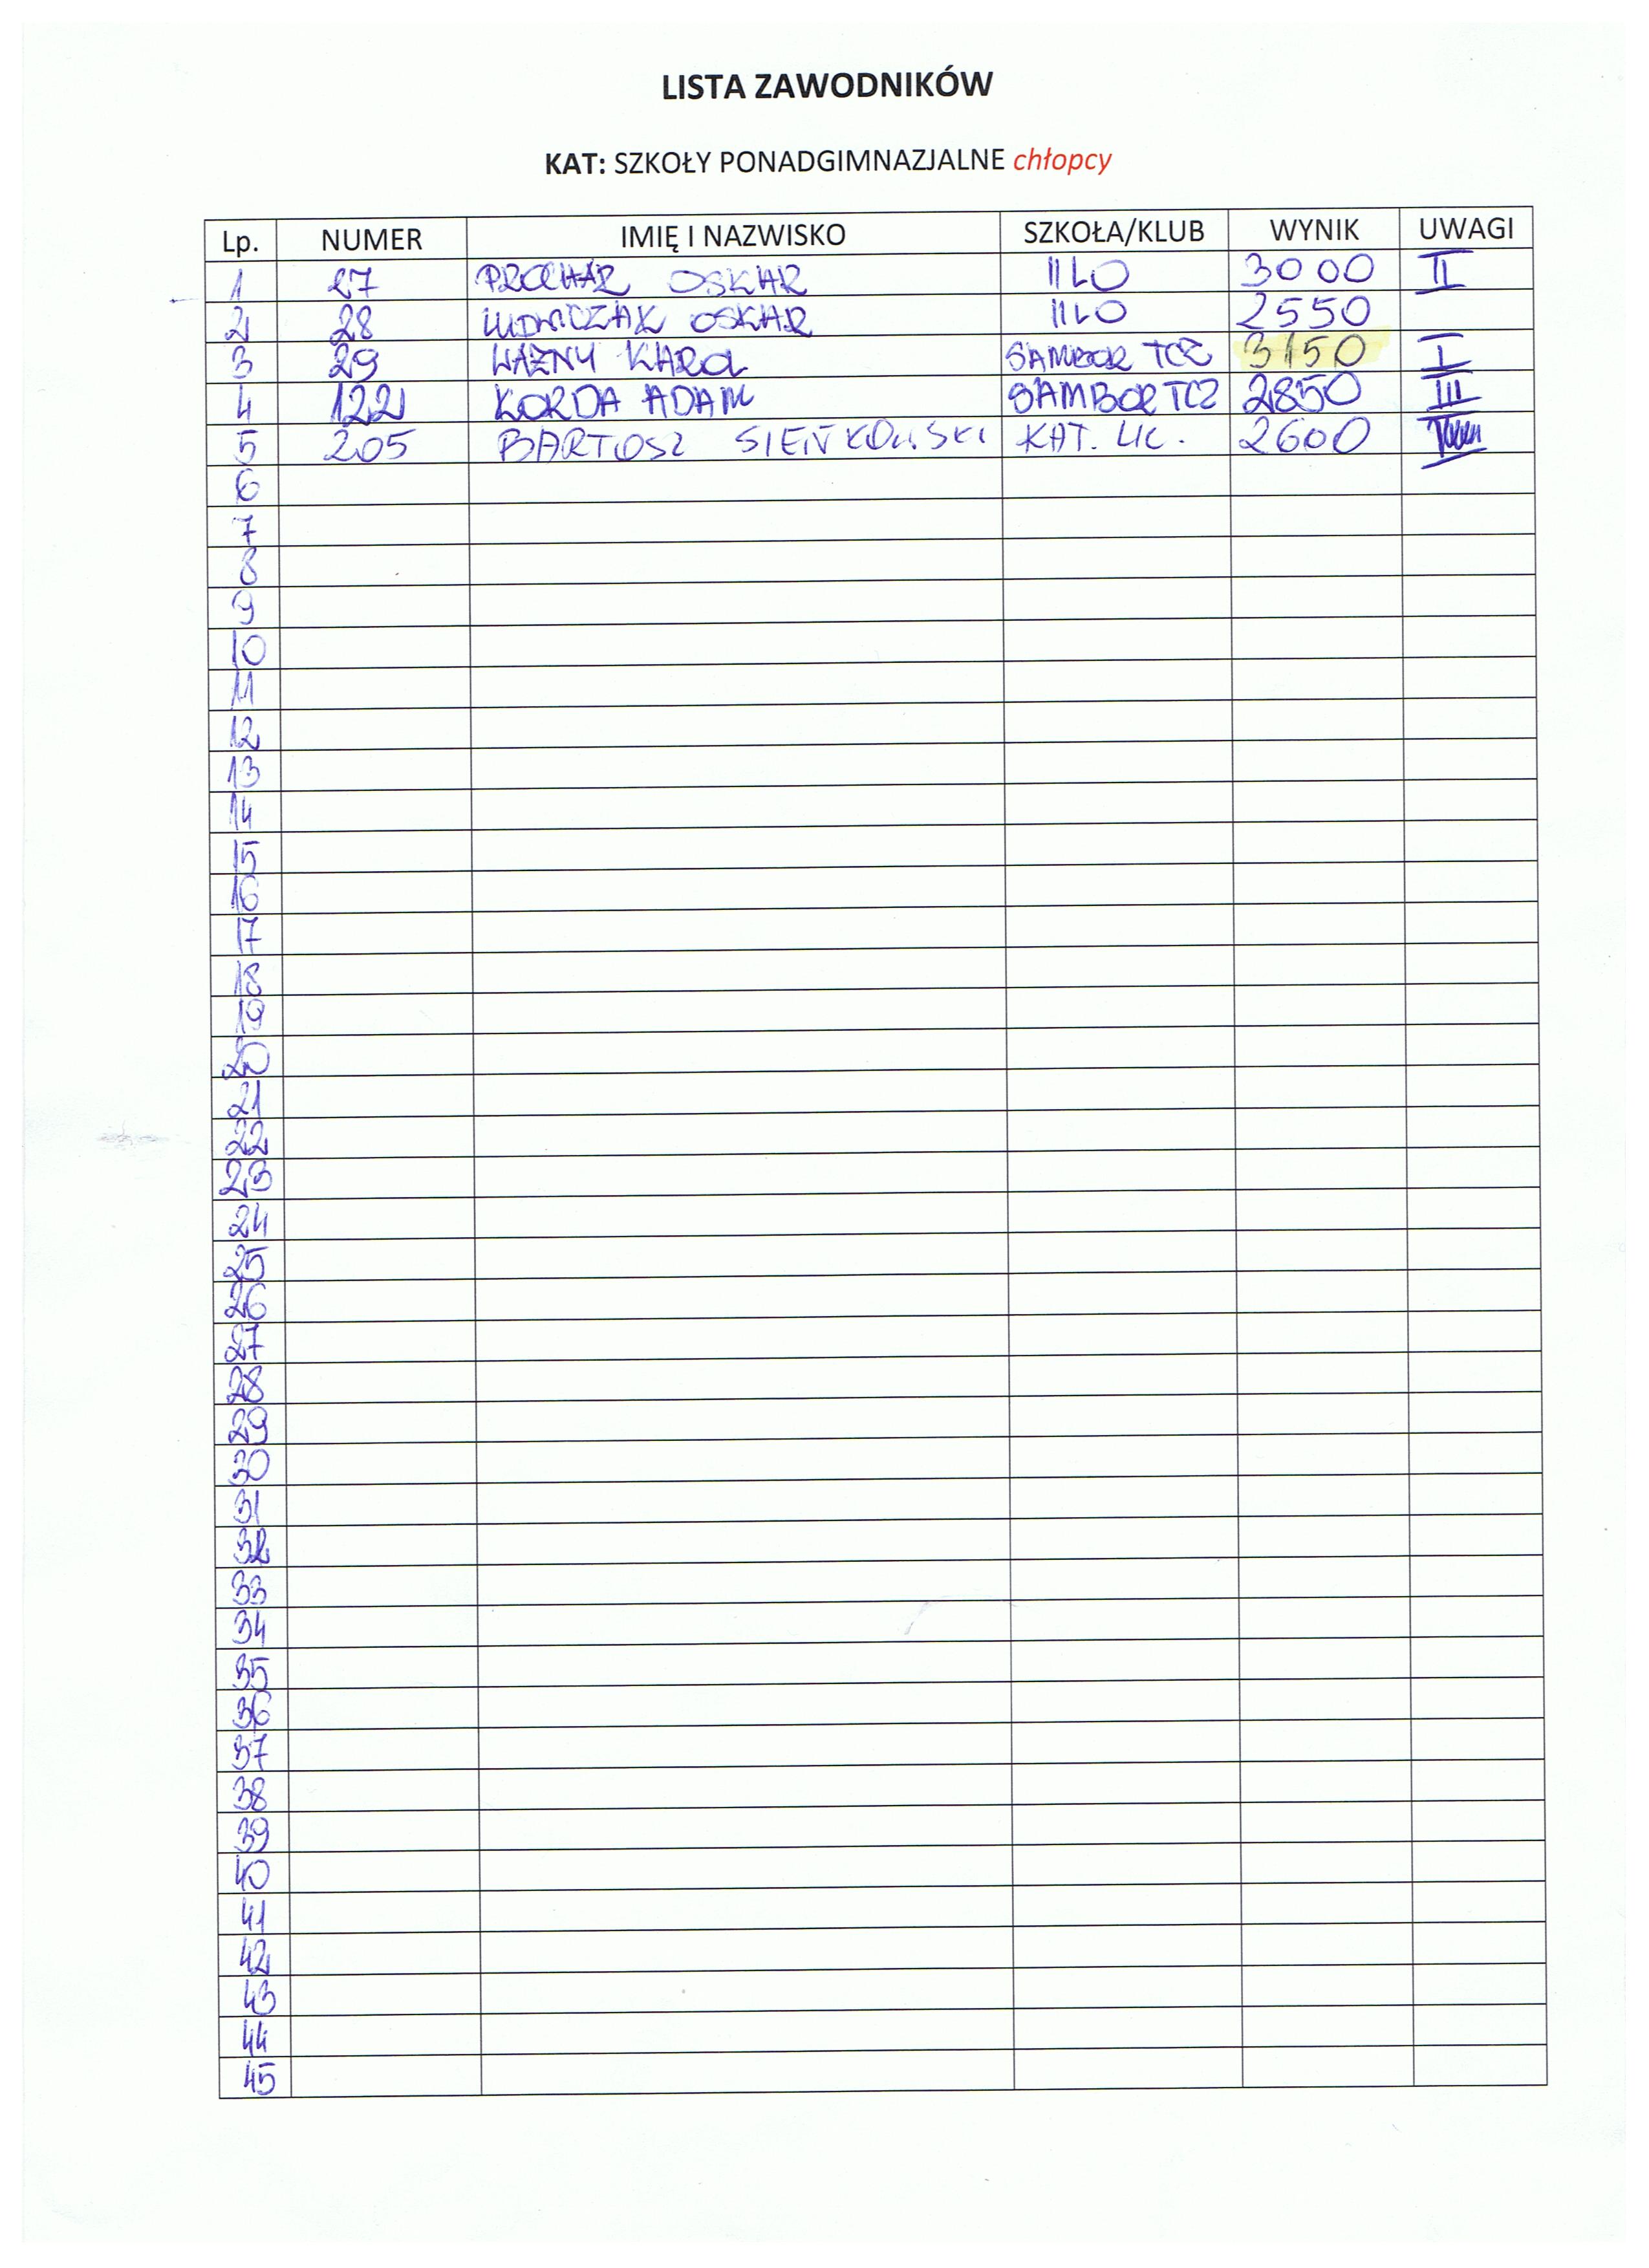 LISTA ZAWODNIKÓW
KAT: SZKOŁY PONADGIMNAZJALNE chłopcy
Lp. NUMER IMIĘ I NAZWISKO SZKOŁA/KLUB WYNIK UWAGI
1 27 PROCHAR OSKAR II LO 3000 II
2 28 LUDWICZAK OSKAR II LO 2550
3 29 WAŻNY KAROL SAMBOR TCZ 3150 I
4 122 KORDA ADAM SAMBOR TCZ 2850 III
5 205 BARTOSZ SIEŃKOWSKI KAT. LIC. 2600
6
7
8
9
10
11
12
13
14
15
16
17
18
19
20
21
22
23
24
25
26
27
28
29
30
31
32
33
34
35
36
37
38
39
40
41
42
43
44
45